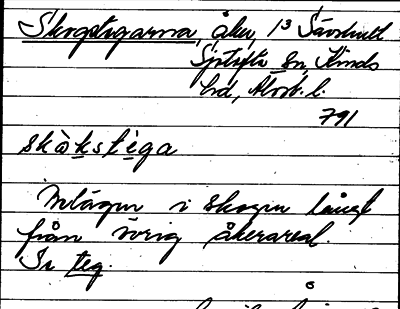 Skogstegarna, åker, 1³ Sävshult
Sjötofta sn, Kinds
hd, Älvsb. l.
791
skòkstèga
Inlägor i skogen långt
från övrig åkerareal.
Se teg.